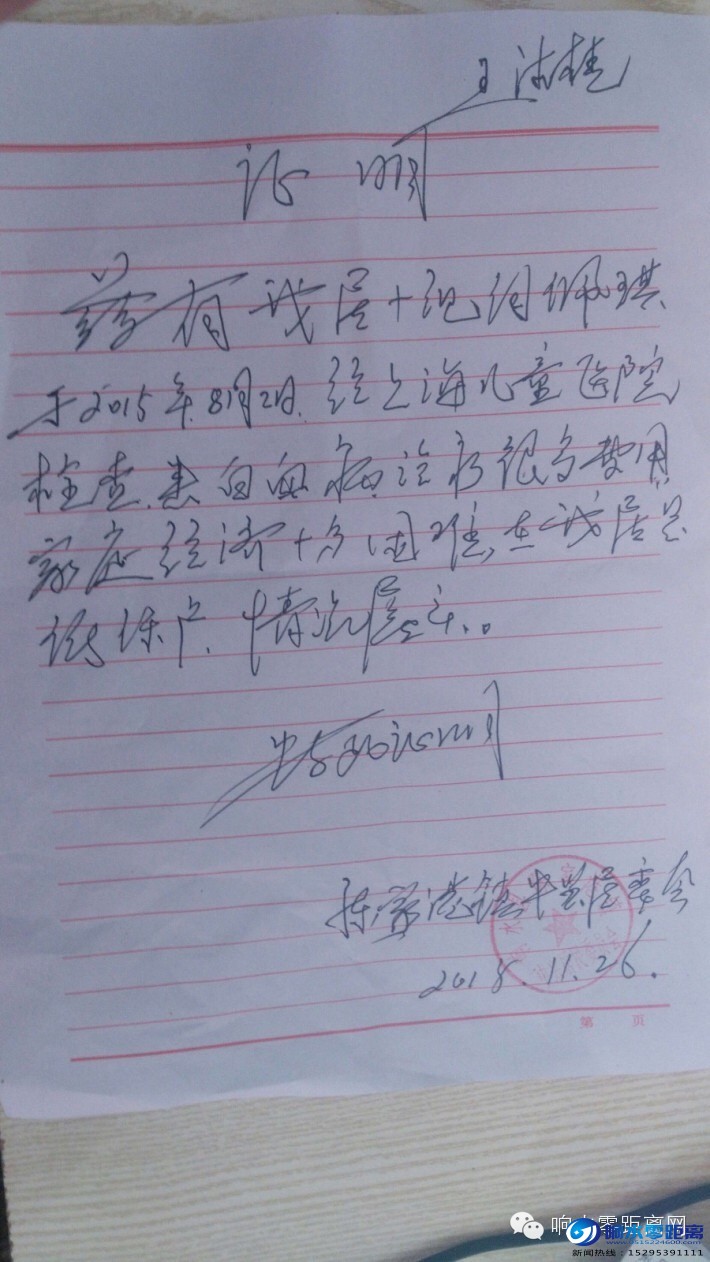 王
证明
兹有我居十组何佩琪
于2015年8月2日经上海儿童医院
检查,患白血病,治疗很多费用
家庭经济十分困难,在我居是
低保户,情况属实。
特此证明
陈家港镇 居委会
2015.11.26.
第 页
响水零距离网
响水零距离
www.15152224600.com
新闻热线:15295391111